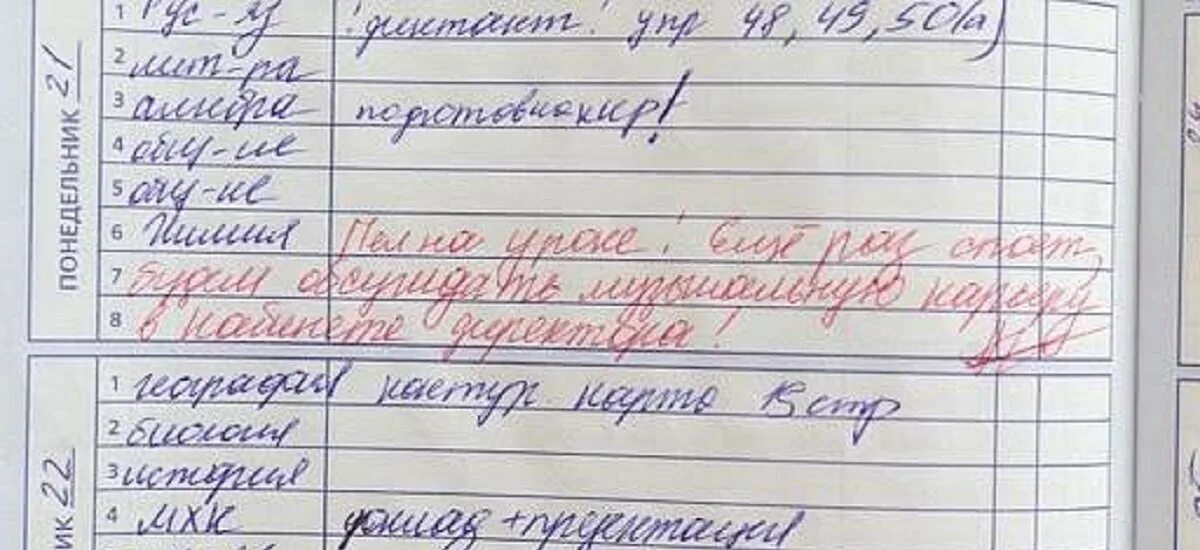 ПОНЕДЕЛЬНИК 21
1 Рус-яз !диктант! упр 48, 49, 50(а)
2 лит-ра
3 алгебра
4
5
6 Химия Пел на уроке! Ещё раз споёт,
7 будем обсуждать музыкальную карьеру
8 в кабинете директора!
ИК 22
1 география контур карта 13 стр
2 биология
3 история
4 МХК доклад + презентация